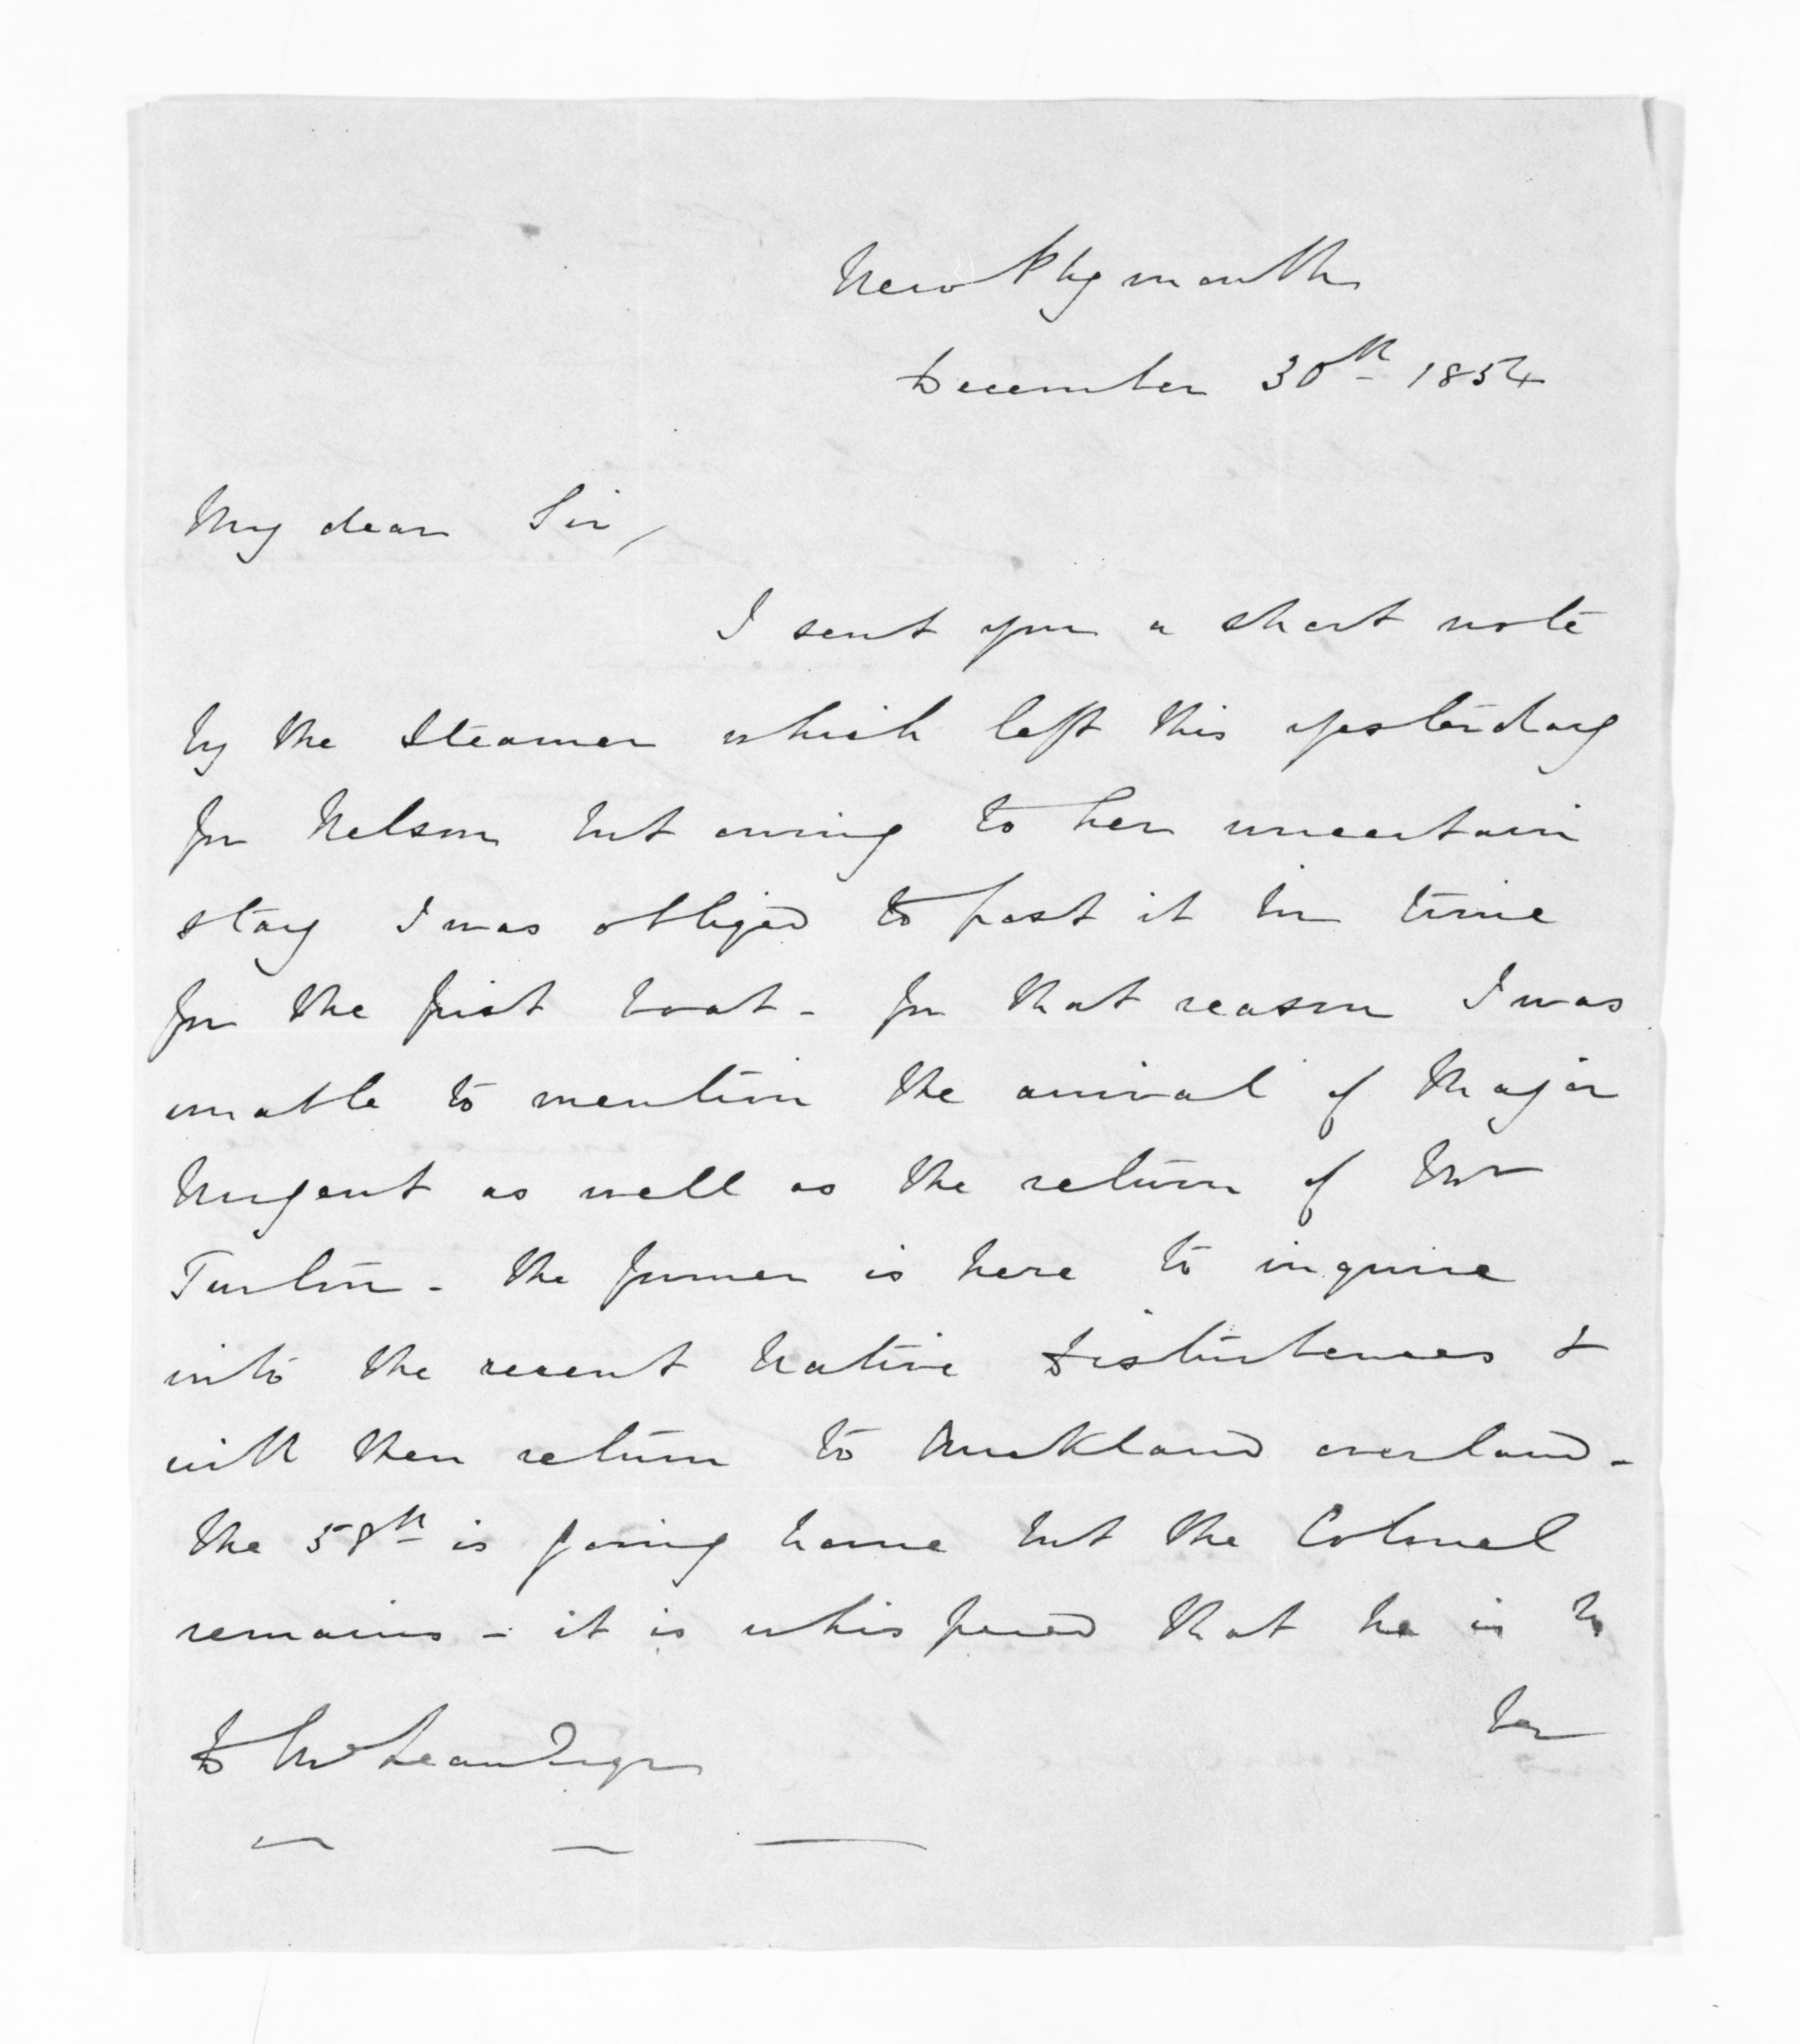 New Plymouth
December 30th 1854
My dear Sir,
I sent you a short note
by the Steamer which left this yesterday
for Nelson but owing to her uncertain
stay I was obliged to post it in time
for the first boat - for that reason I was
unable to mention the arrival of Major
Nugent as well as the return of Mr
Turton - the former is here to inquire
into the recent Native Disturbances &
will then return to Auckland overland -
the 58th is going home but the Colonel
remains - it is whispered that he is to
be
D McLean Esqr